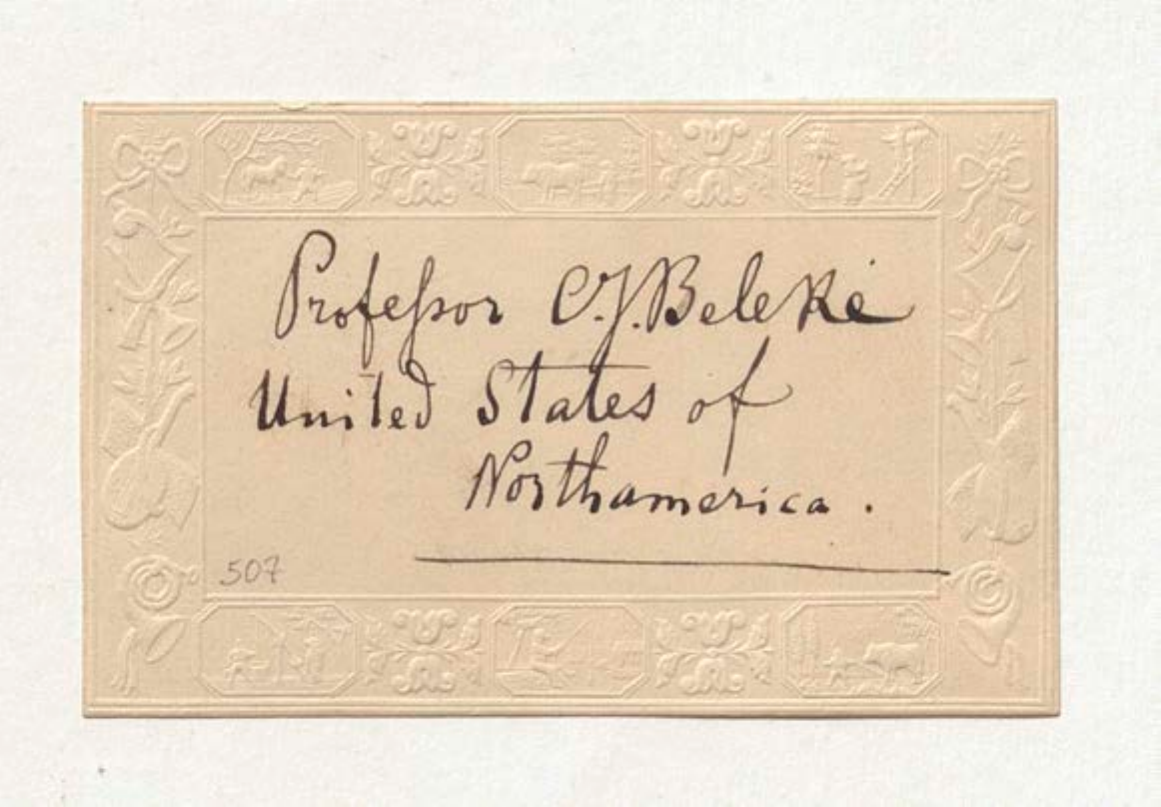 Professor C. J. Beleke
United States of
Northamerica.
507